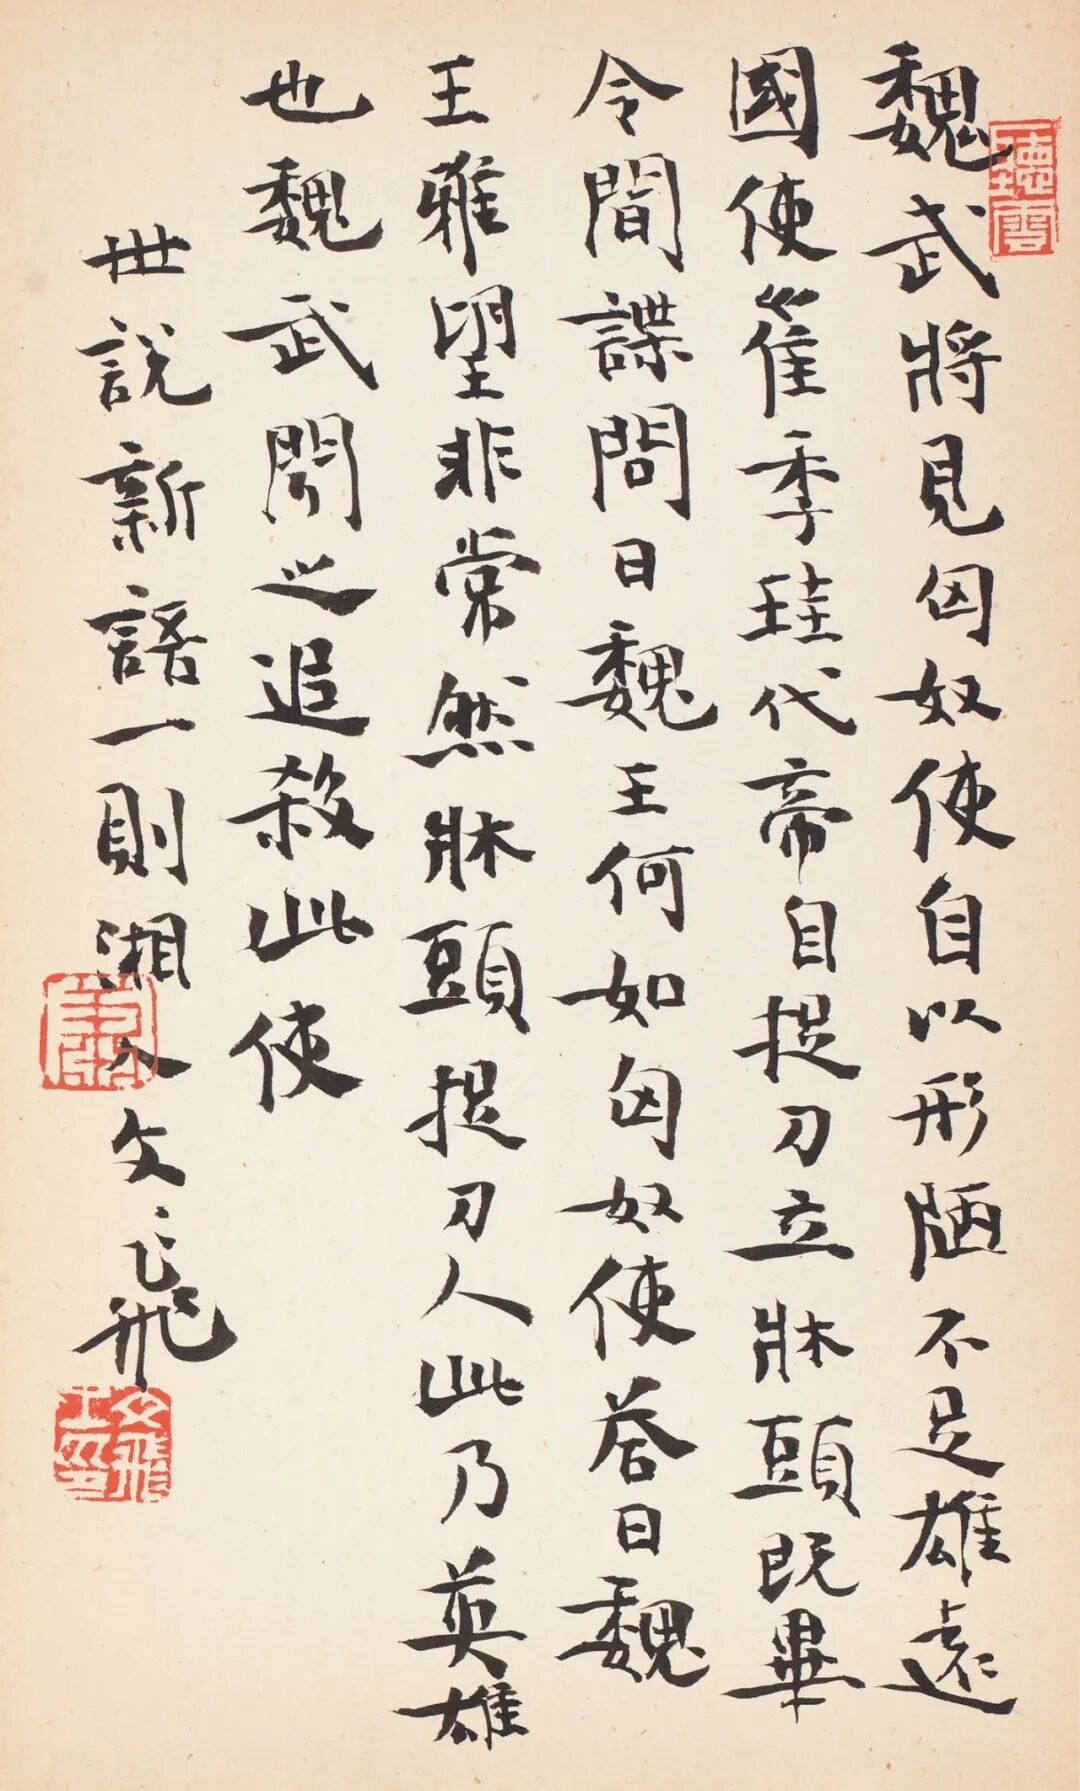 魏武將見匈奴使自以形陋不足雄遠
國使崔季珪代帝自捉刀立牀頭既畢
令間諜問曰魏王何如匈奴使答曰魏
王雅望非常然牀頭捉刀人此乃英雄
也魏武聞之追殺此使
世說新語一則湘人文正飛